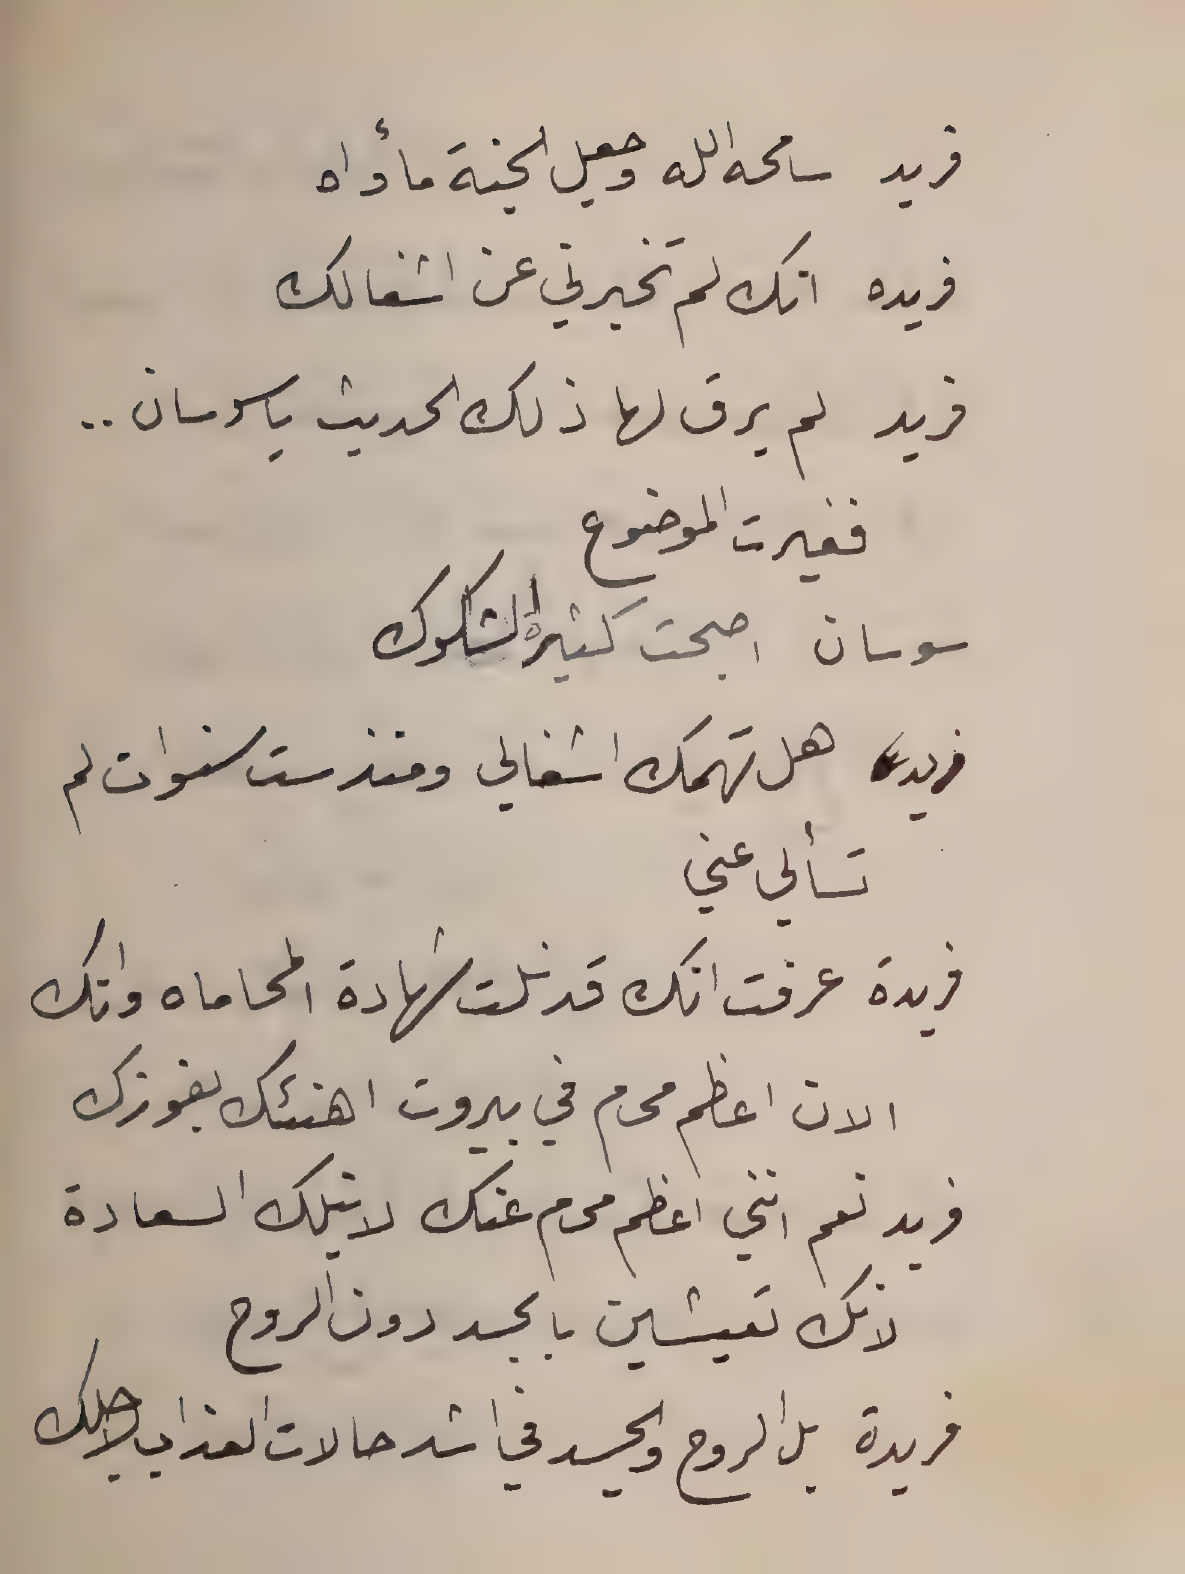 فريد سامحه الله وجعل الجنة مأواه
فريده انك لم تخبرني عن اشغالك
فريد لم يرق لها ذلك الحديث ياسوسان ..
فغيرت الموضوع
سوسان اصبحت كثيرة الشكوك
فريد هل تهمك اشغالي ومنذ ست سنوات لم
تسألي عني
فريدة عرفت انك قد نلت شهادة المحاماه وانك
الان اعظم محام في بيروت اهنئك بفوزك
فريد نعم انني اعظم محام عنك لانيلك السعادة
لانك تعيشين بالجسد دون الروح
فريدة بل الروح والجسد في اشد حالات العذاب لاجلك